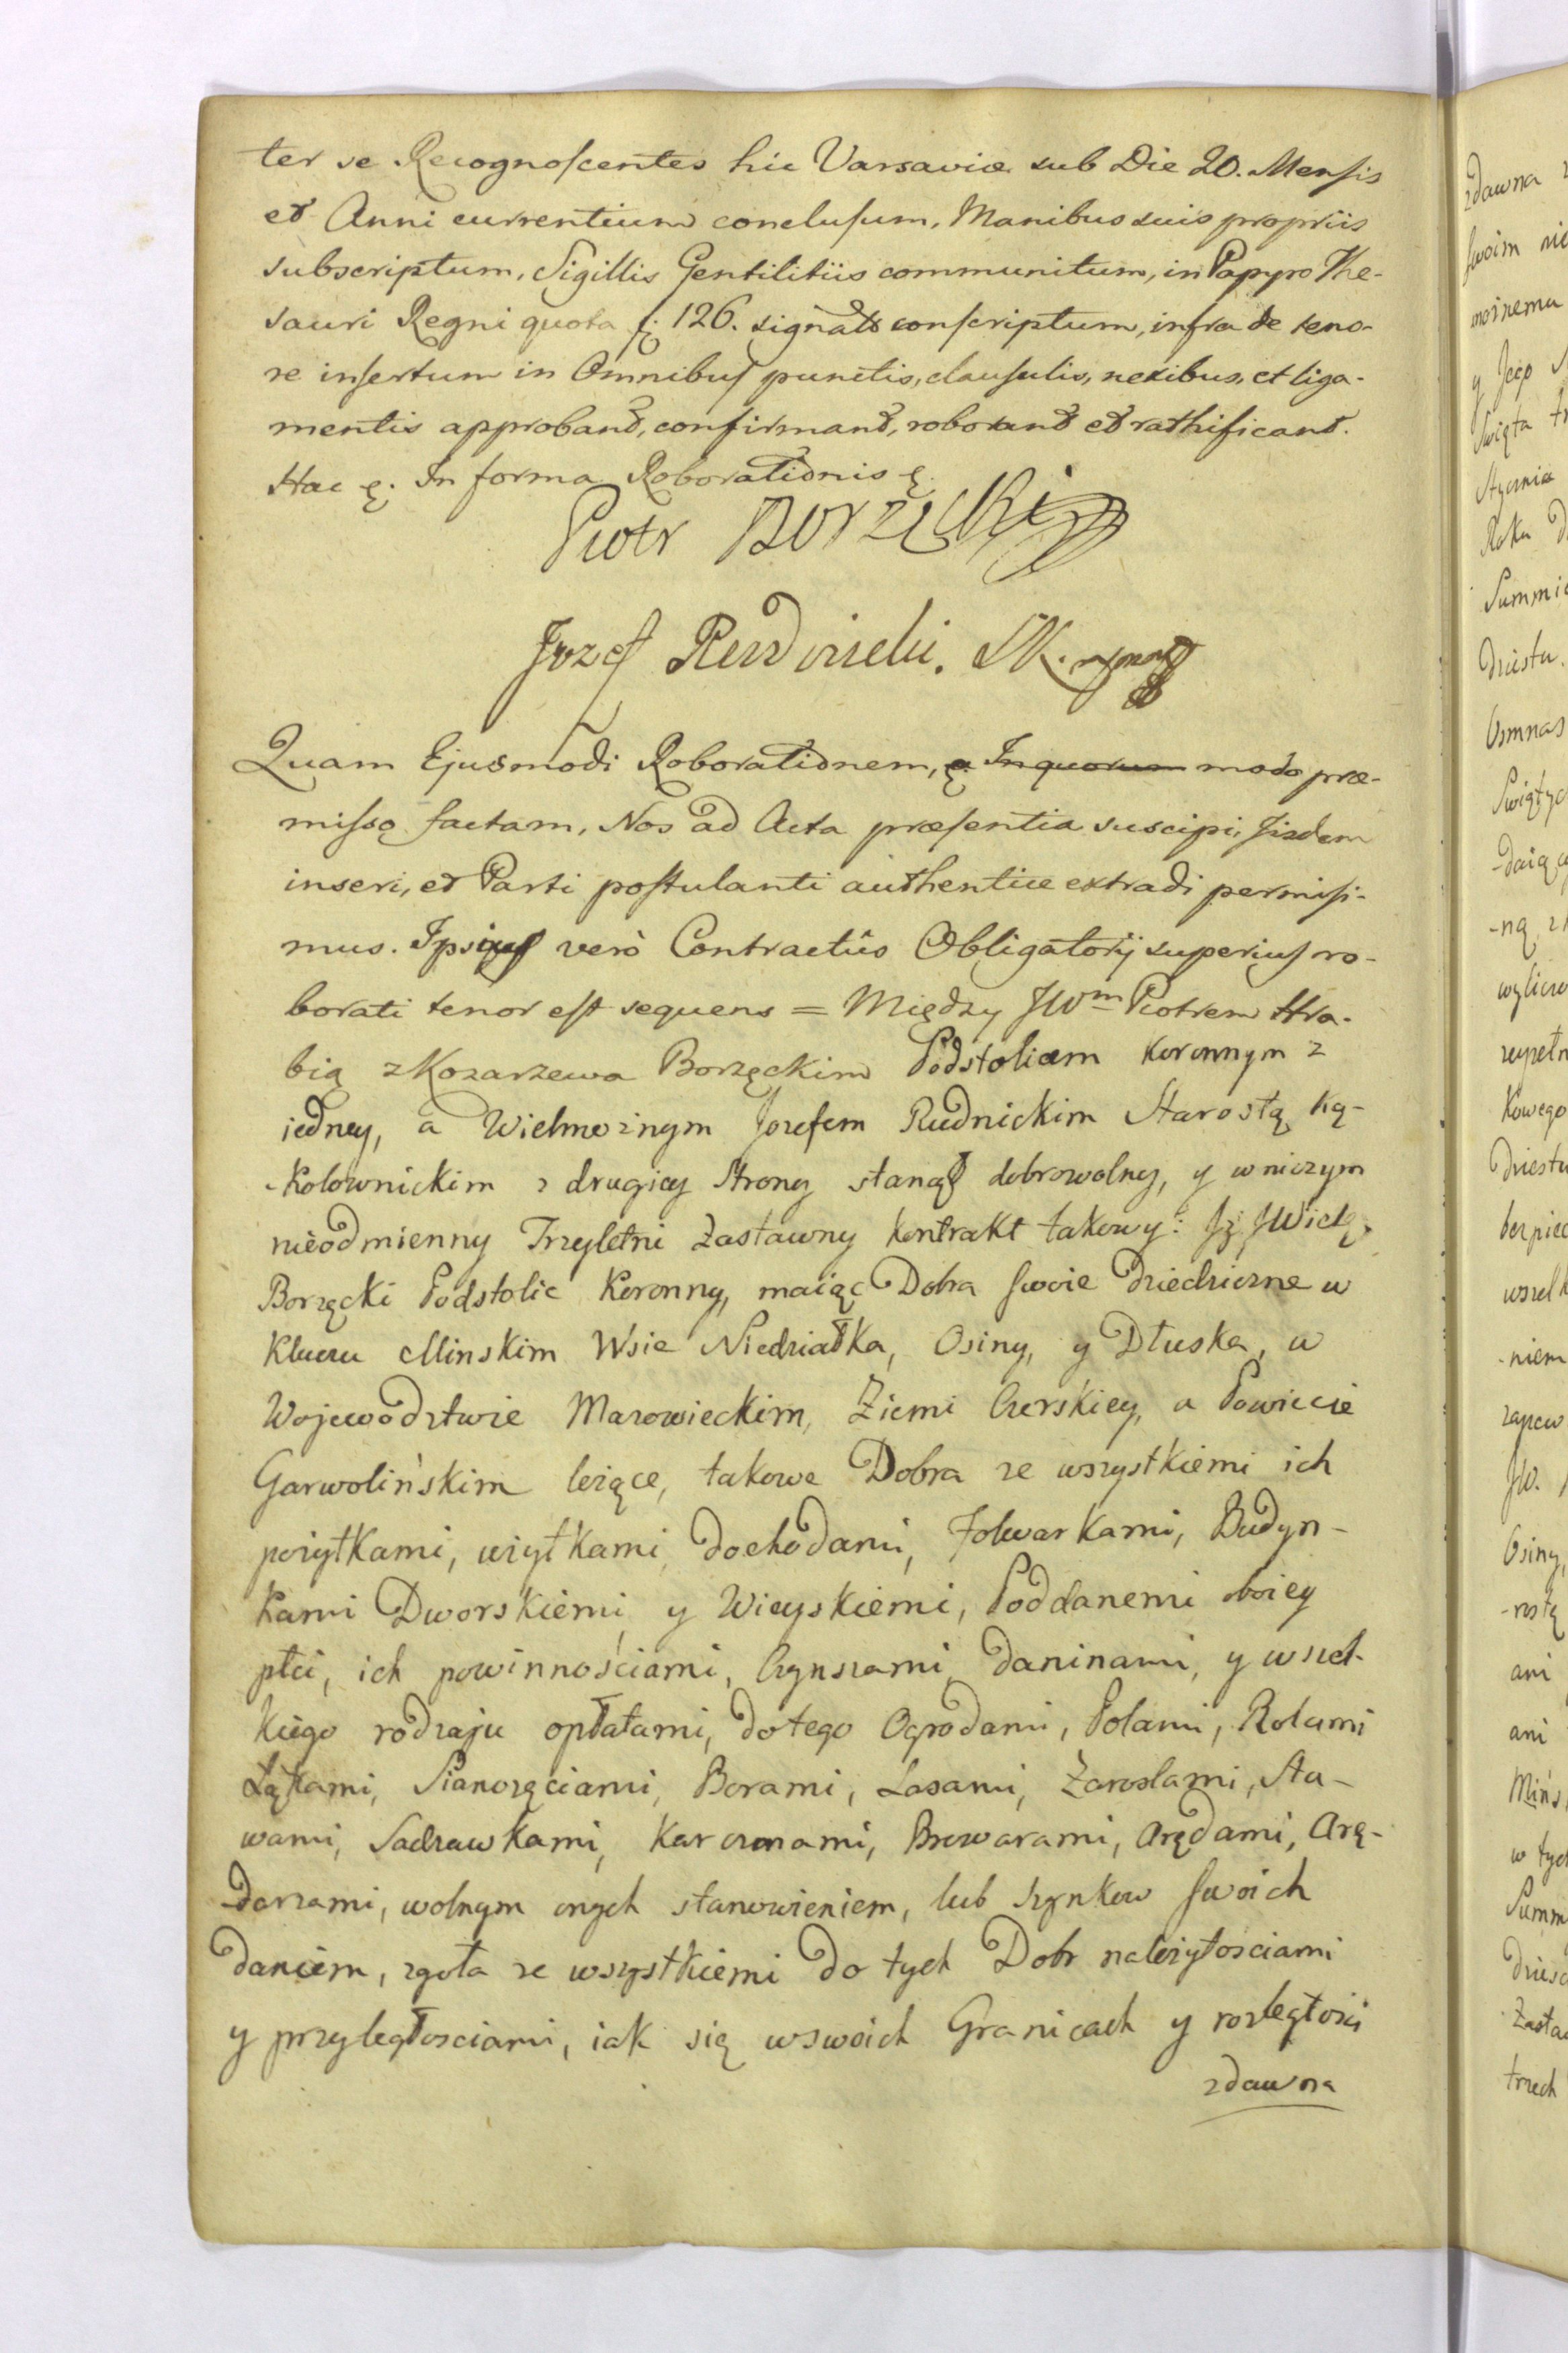 ter se Recognoſcentes hic Varsaviæ sub Die 20. Menſis
et Anni currentium concluſum, Manibus suis propriis
subscriptum, Sigillis Gentilitiis communitum, in Papyro The-
sauri Regni quota 126. signato conſcriptum, infra de teno-
re inſertum in Omnibuſ punctis, clauſulis, nexibus, et liga-
mentis approbant, confirmant, roborant et rathificant.
Hac In forma Roborationis
Piotr Borzęcki
Jozef Rudnicki. SK.
Quam Ejusmodi Roborationem, Inquorum modo præ-
miſso factam, Nos ad Acta præſentia suscipi, Iisdem
inseri, et Parti poſtulanti authentice extradi permiſi-
mus. Ipsiuſ verò Contractûs Obligatorij superiuſ ro-
borati tenor eſt sequens = Między JWm Piotrem Hra-
bią z Kozarzewa Borzęckim Podstoliem Koronnym z
iedney, a Wielmoznym Jozefem Rudnickim Starostą Ką-
-kolownickim z drugiey Strony stanął dobrowolny, y wniczym
nieodmienny Trzyletni Zastawny kontrakt takowy: Jż JWielg.
Borzęcki Podstolic Koronny, maiąc Dobra ſwoie Dziedziczne w
Kluczu Minskim Wsie Niedziałka, Osiny, y Dłuska, w
Wojewodztwie Mazowieckim, Ziemi Czerskiey, a Powiecie
Garwolińskim leżące, takowe Dobra ze wszystkiemi ich
pożytkami, użytkami, dochodami, Folwarkami, Budyn-
kami Dworskiemi, y Wieyskiemi, Poddanemi oboiey
płci, ich powinnościami, Czynszami, daninami, y wszel-
kiego rodzaju opłatami, dotego Ogrodami, Polami, Rolami
Łąkami, Sianożęciami, Borami, Lasami, Zaroslami, Sta-
wami, Sadzawkami, Karczmami, Browarami, Arędami, Arę-
darzami, wolnym onych stanowieniem, lub Szynkow ſwoich
daniem, zgoła ze wszystkiemi do tych Dobr należytosciami
y przyległosciami, iak się wswoich Granicach y rozległości
zdawna